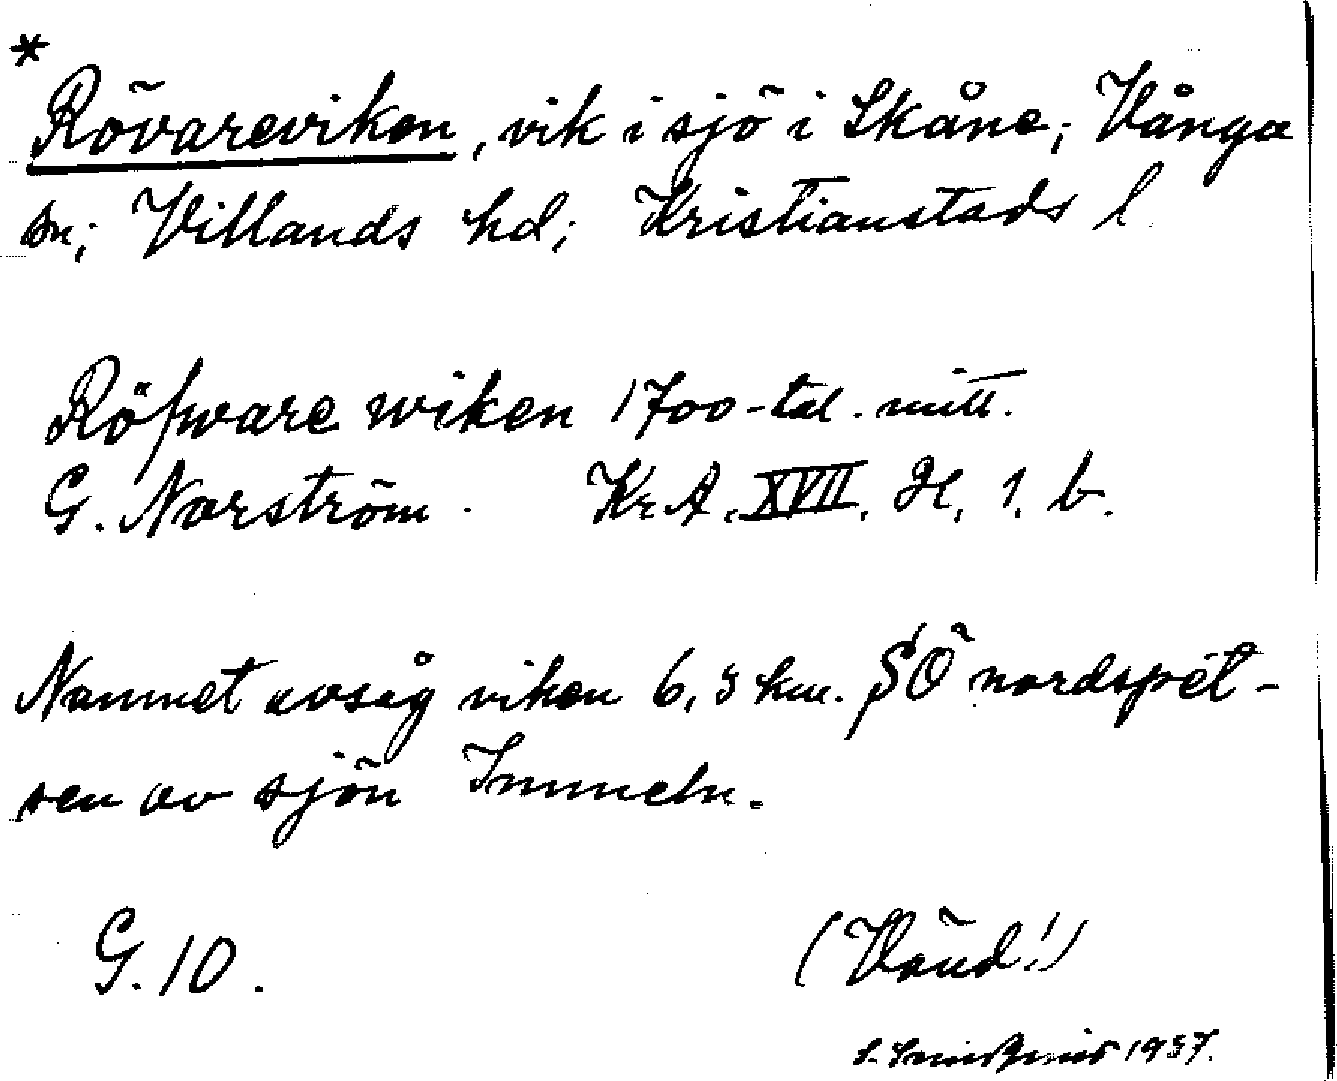 *
Rövareviken, vik i sjö i Skåne; Vånga
sn; Villands hd; Kristianstads l
Röfware wiken 1700-tal. mitt.
G. Norström. Kr. A. XVII. H. 1. b.
Namnet avsåg viken 6,5 km. SÖ nordspet-
sen av sjön Immeln.
G. 10.
(Vänd!)
1937.